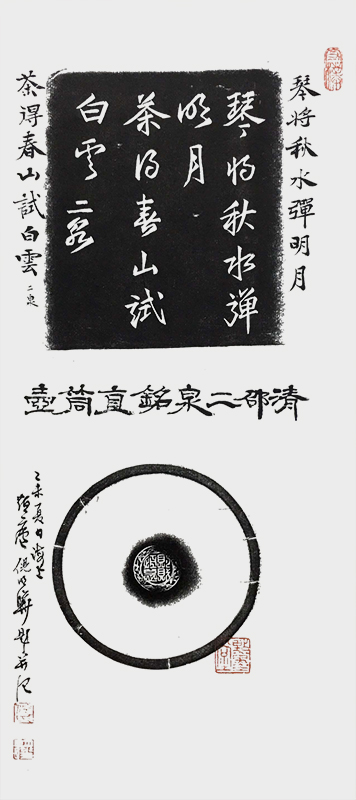 琴將秋水彈明月
琴將秋水彈
明月
茶得春山試
白雲 二泉
茶得春山試白雲 二泉
清邵二泉銘直筒壺
乙未夏日